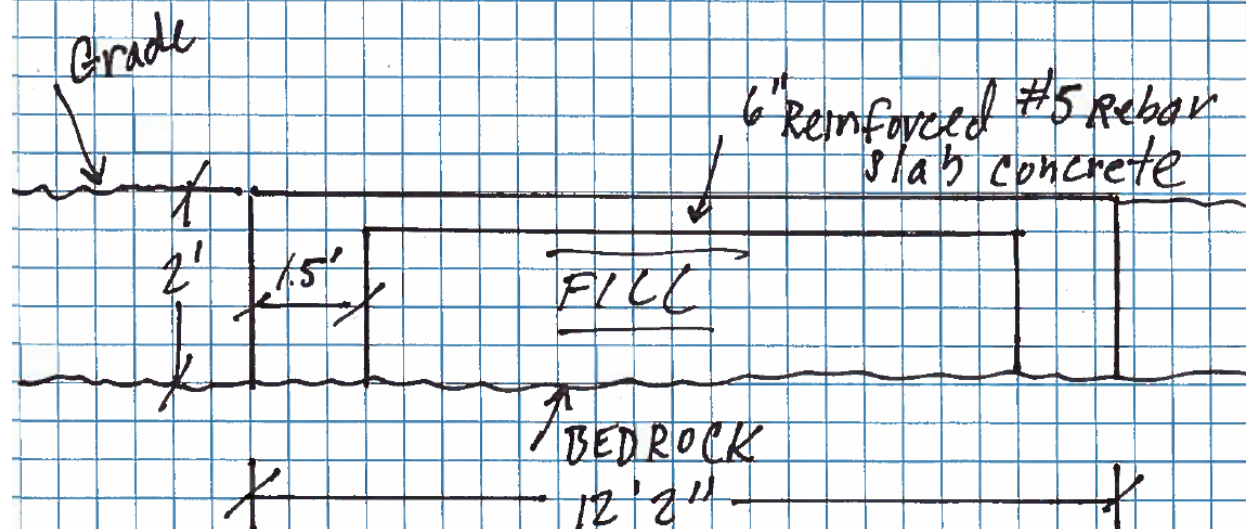 Grade
6" Reinforced #5 Rebar
slab concrete
2'
1.5'
FILL
BEDROCK
12' 2"